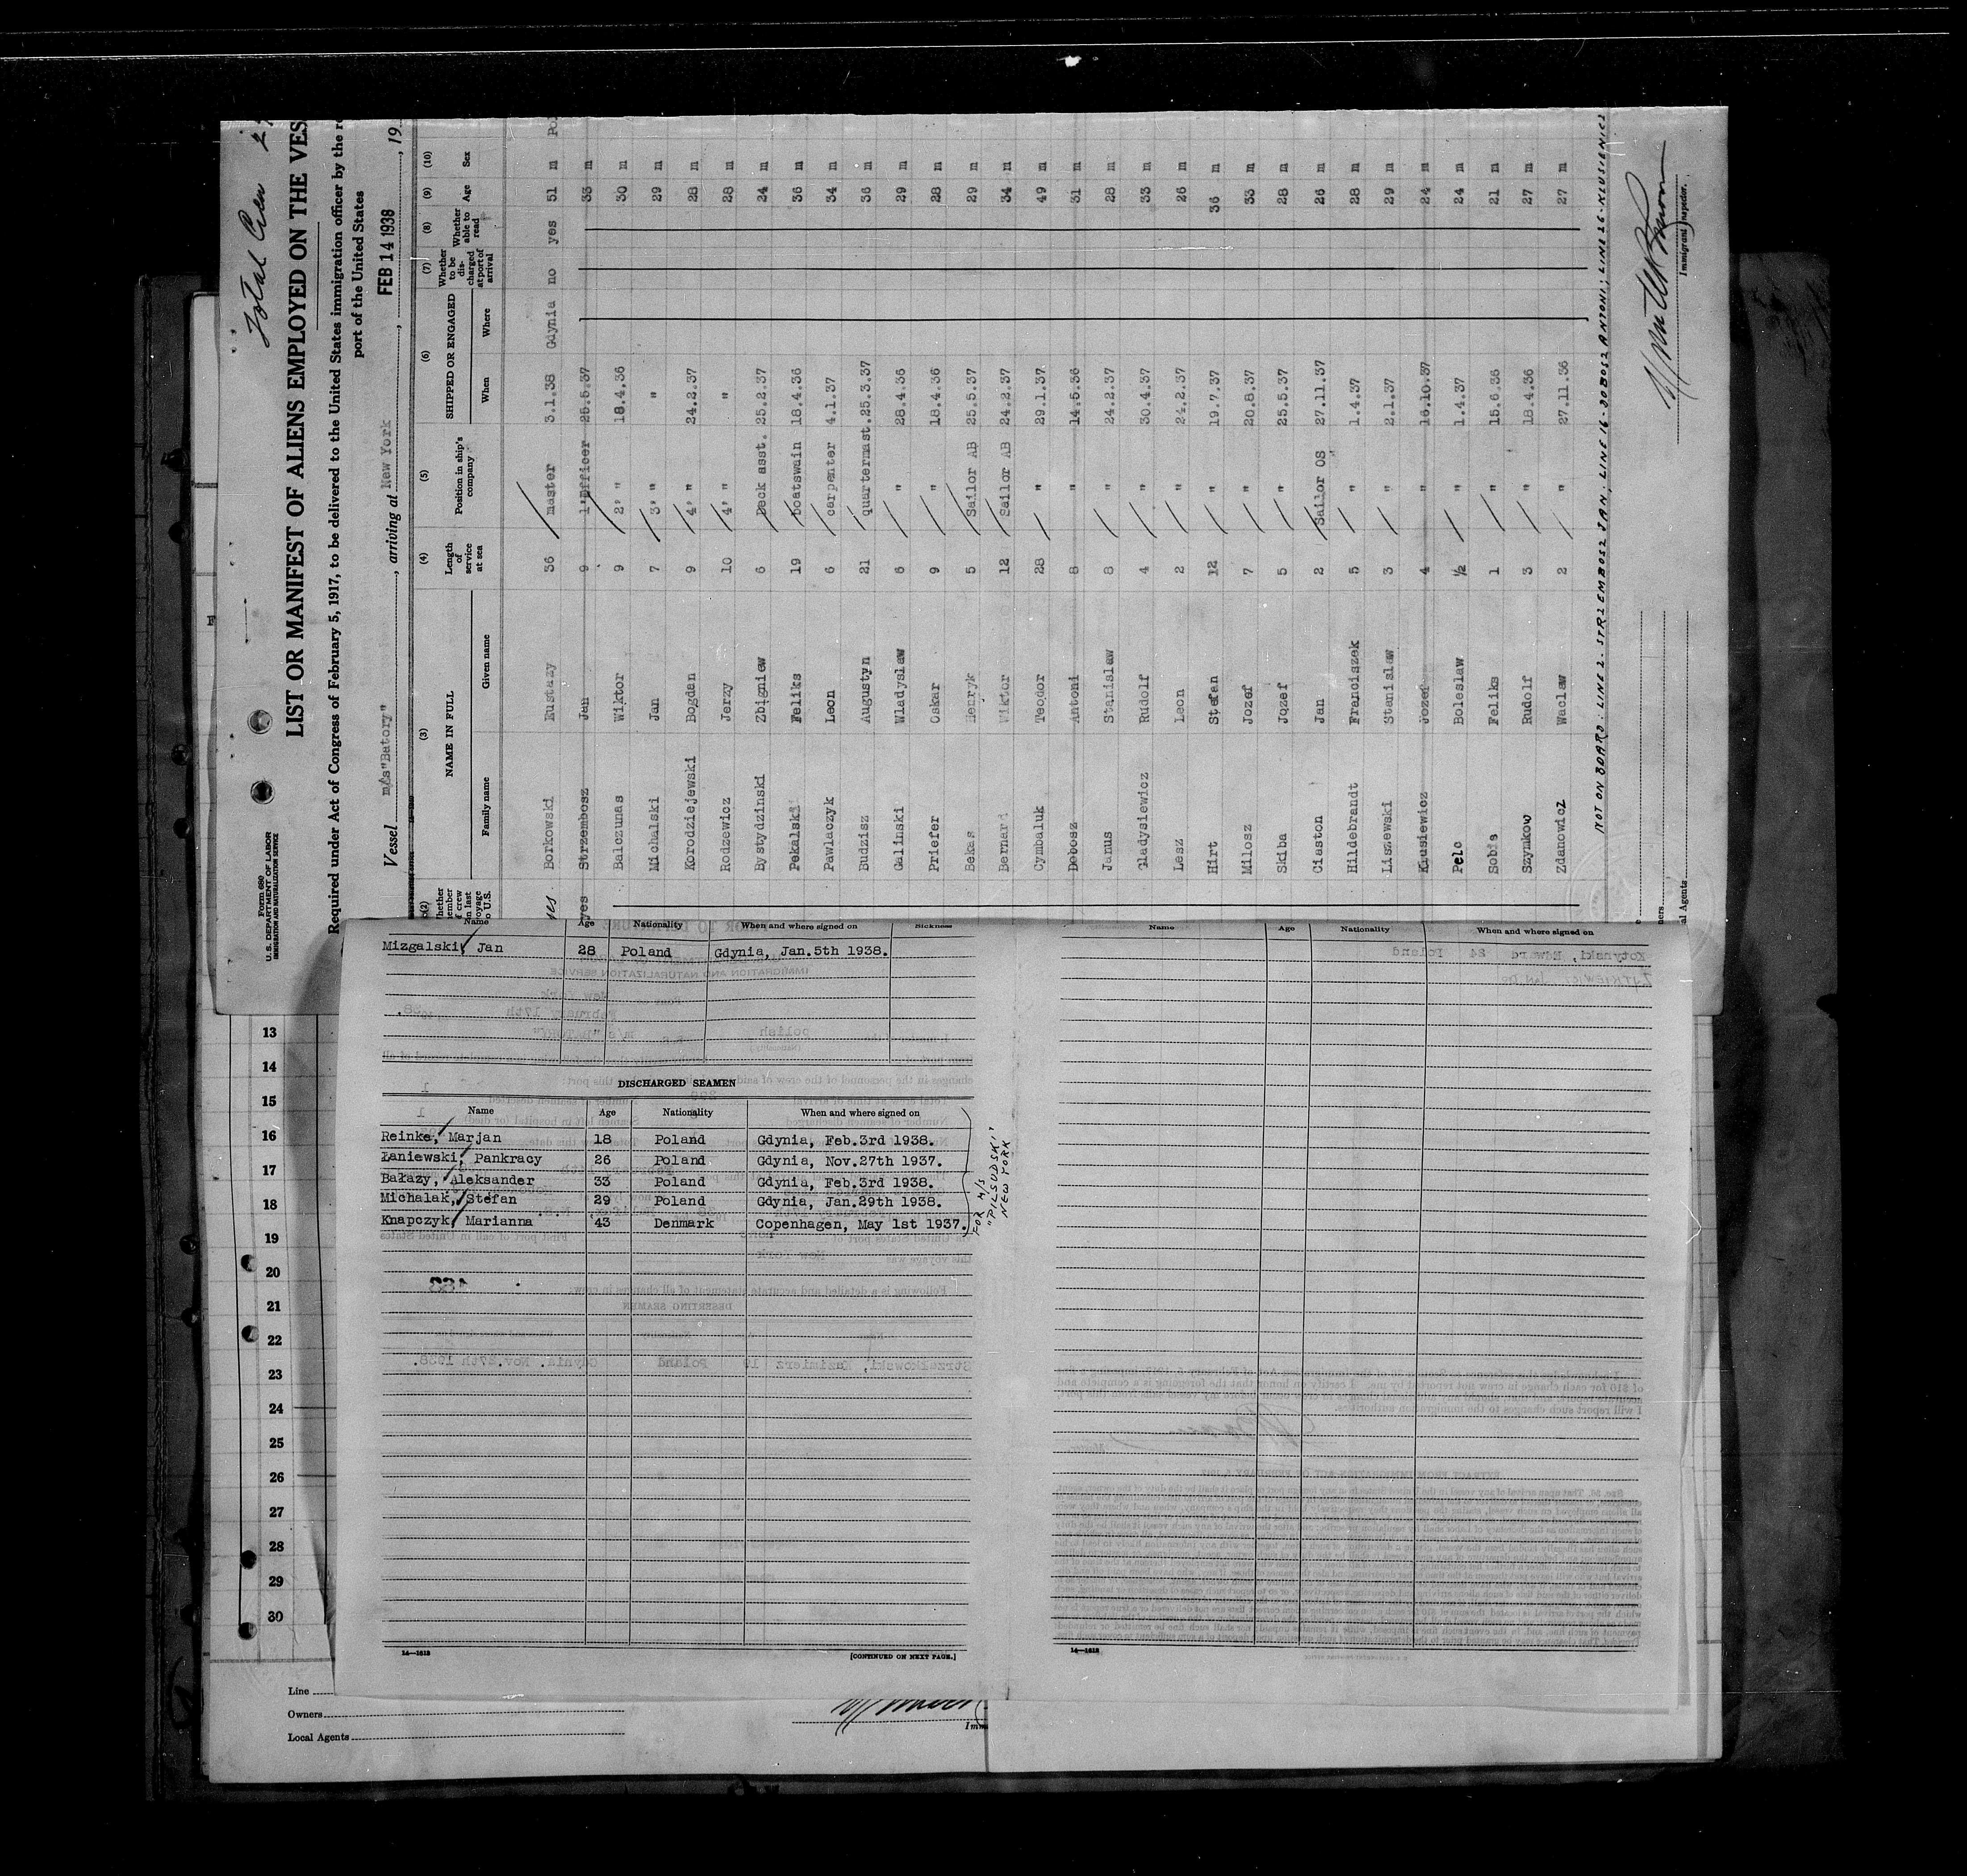 Total Crew
Form 680
U. S. DEPARTMENT OF LABOR
IMMIGRATION AND NATURALIZATION SERVICE
LIST OR MANIFEST OF ALIENS EMPLOYED ON THE VES
Required under Act of Congress of February 5, 1917, to be delivered to the United States immigration officer by the re
port of the United States
Vessel m/s"Batory" , arriving at New York , FEB 14 1938 , 19
(2) (3) (4) (5) (6) (7) (8) (9) (10)
NAME IN FULL Length of service at sea Position in ship's company SHIPPED OR ENGAGED Whether to be discharged at port of arrival Whether able to read Age Sex
Family name Given name When Where
yes Borkowski Eustazy 36 master 3.1.38 Gdynia no yes 51 m Pol
yes Strzembosz Jan 9 1'officer 25.5.37 33 m
Balczunas Wiktor 9 2' " 18.4.36 30 m
Michalski Jan 7 3' " " 29 m
Korodziejewski Bogdan 9 4' " 24.2.37 28 m
Rodzewicz Jerzy 10 4' " " 28 m
Bystydzinski Zbigniew 6 Deck asst. 25.2.37 24 m
Pekalski Feliks 19 boatswain 18.4.36 36 m
Pawlaczyk Leon 6 carpenter 4.1.37 34 m
Budzisz Augustyn 21 quartermast. 25.3.37 36 m
Galinski Wladyslaw 6 " 28.4.36 29 m
Priefer Oskar 9 " 18.4.36 28 m
Bekas Henryk 5 Sailor AB 25.5.37 29 m
Bernard Wiktor 12 Sailor AB 24.2.37 34 m
Cymbaluk Teodor 28 " 29.1.37 49 m
Dobosz Antoni 8 " 14.5.36 31 m
Janus Stanislaw 8 " 24.2.37 28 m
Gladysiewicz Rudolf 4 " 30.4.37 33 m
Lesz Leon 2 " 24.2.37 26 m
Hirt Stefan 12 " 19.7.37 36 m
Milosz Jozef 7 " 20.8.37 33 m
Skiba Jozef 5 " 25.5.37 28 m
Ciaston Jan 2 Sailor OS 27.11.37 26 m
Hildebrandt Franciszek 5 " 1.4.37 28 m
Liszewski Stanislaw 3 " 2.1.37 29 m
Krusiewicz Jozef 4 " 16.10.37 24 m
Pelc Boleslaw ½ " 1.4.37 24 m
Sobis Feliks 1 " 15.6.36 21 m
Szymkow Rudolf 3 " 18.4.36 27 m
Zdanowicz Waclaw 2 " 27.11.36 27 m
NOT ON BOARD: LINE 2. STRZEMBOSZ JAN, LINE 16-DOBOSZ ANTONI; LINE 26-KLUSIENICZ
Immigrant Inspector.
al Agents
Name Age Nationality When and where signed on Sickness
Mizgalski, Jan 28 Poland Gdynia, Jan.5th 1938.
DISCHARGED SEAMEN
Name Age Nationality When and where signed on
Reinke, Marjan 18 Poland Gdynia, Feb.3rd 1938.
Łaniewski, Pankracy 26 Poland Gdynia, Nov.27th 1937.
Bałazy, Aleksander 33 Poland Gdynia, Feb.3rd 1938.
Michalak, Stefan 29 Poland Gdynia, Jan.29th 1938.
Knapczyk, Marianna 43 Denmark Copenhagen, May 1st 1937.
FOR M/S
"PILSUDSKI"
NEW YORK
14—1618
[CONTINUED ON NEXT PAGE.]
Name Age Nationality When and where signed on
14—1618
13
14
15
16
17
18
19
20
21
22
23
24
25
26
27
28
29
30
Line
Owners
Local Agents
Imm